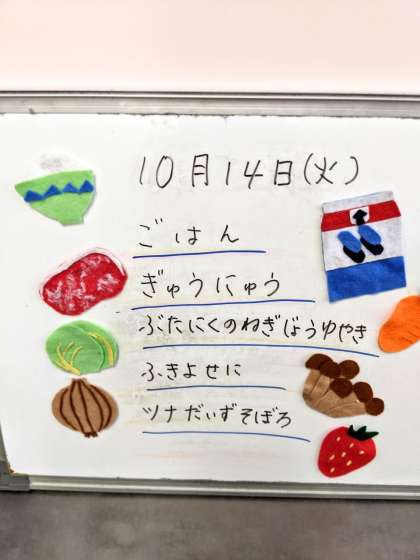 10月14日(火)
ごはん
ぎゅうにゅう
ぶたにくのねぎじょうゆやき
ふきよせに
ツナだいずそぼろ